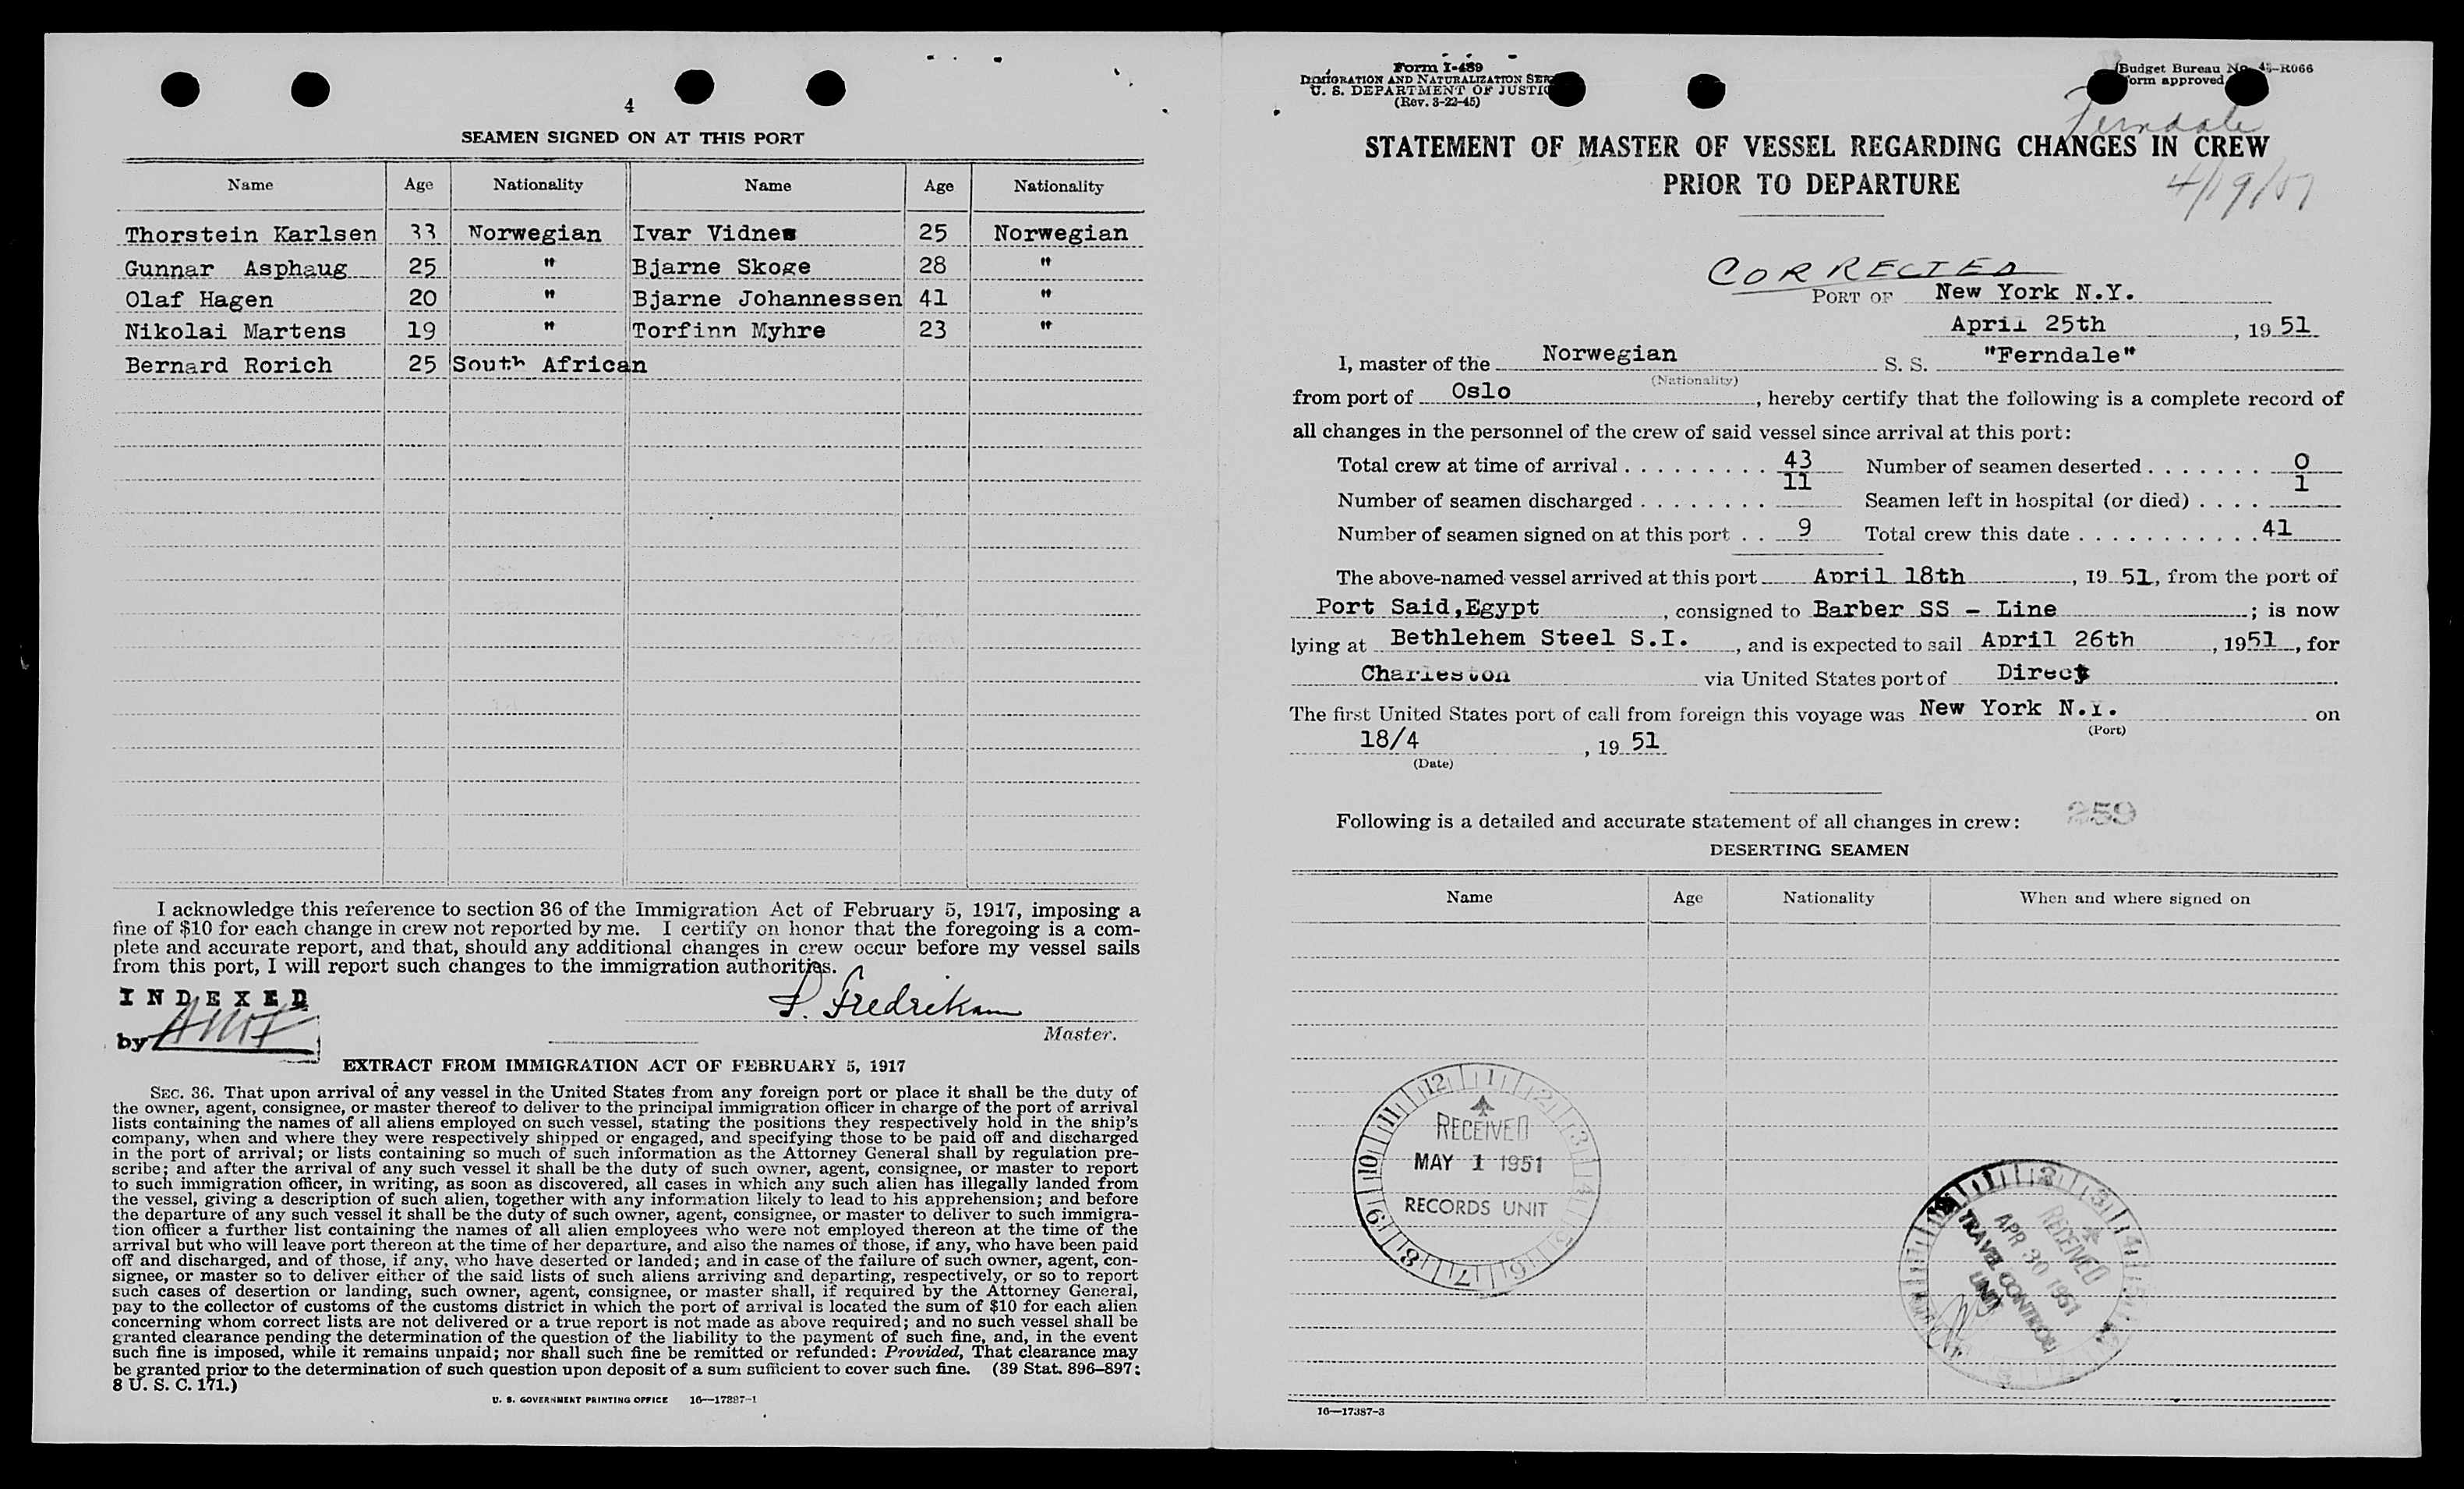 4
SEAMEN SIGNED ON AT THIS PORT
Name Age Nationality Name Age Nationality
Thorstein Karlsen 33 Norwegian Ivar Vidnes 25 Norwegian
Gunnar Asphaug 25 " Bjarne Skoge 28 "
Olaf Hagen 20 " Bjarne Johannessen 41 "
Nikolai Martens 19 " Torfinn Myhre 23 "
Bernard Rorich 25 South African
I acknowledge this reference to section 36 of the Immigration Act of February 5, 1917, imposing a
fine of $10 for each change in crew not reported by me. I certify on honor that the foregoing is a com-
plete and accurate report, and that, should any additional changes in crew occur before my vessel sails
from this port, I will report such changes to the immigration authorities.
INDEXED
by
Master.
EXTRACT FROM IMMIGRATION ACT OF FEBRUARY 5, 1917
SEC. 36. That upon arrival of any vessel in the United States from any foreign port or place it shall be the duty of
the owner, agent, consignee, or master thereof to deliver to the principal immigration officer in charge of the port of arrival
lists containing the names of all aliens employed on such vessel, stating the positions they respectively hold in the ship's
company, when and where they were respectively shipped or engaged, and specifying those to be paid off and discharged
in the port of arrival; or lists containing so much of such information as the Attorney General shall by regulation pre-
scribe; and after the arrival of any such vessel it shall be the duty of such owner, agent, consignee, or master to report
to such immigration officer, in writing, as soon as discovered, all cases in which any such alien has illegally landed from
the vessel, giving a description of such alien, together with any information likely to lead to his apprehension; and before
the departure of any such vessel it shall be the duty of such owner, agent, consignee, or master to deliver to such immigra-
tion officer a further list containing the names of all alien employees who were not employed thereon at the time of the
arrival but who will leave port thereon at the time of her departure, and also the names of those, if any, who have been paid
off and discharged, and of those, if any, who have deserted or landed; and in case of the failure of such owner, agent, con-
signee, or master so to deliver either of the said lists of such aliens arriving and departing, respectively, or so to report
such cases of desertion or landing, such owner, agent, consignee, or master shall, if required by the Attorney General,
pay to the collector of customs of the customs district in which the port of arrival is located the sum of $10 for each alien
concerning whom correct lists are not delivered or a true report is not made as above required; and no such vessel shall be
granted clearance pending the determination of the question of the liability to the payment of such fine, and, in the event
such fine is imposed, while it remains unpaid; nor shall such fine be remitted or refunded: Provided, That clearance may
be granted prior to the determination of such question upon deposit of a sum sufficient to cover such fine. (39 Stat. 896-897;
8 U. S. C. 171.)
U. S. GOVERNMENT PRINTING OFFICE 16—17387-1
Form I-489
IMMIGRATION AND NATURALIZATION SER
U. S. DEPARTMENT OF JUSTIC
(Rev. 3-22-45)
Budget Bureau No. 43-R066
orm approved
Ferndale
STATEMENT OF MASTER OF VESSEL REGARDING CHANGES IN CREW
PRIOR TO DEPARTURE
4/19/51
CORRECTED
PORT OF New York N.Y.
April 25th, 19 51
I, master of the Norwegian S. S. "Ferndale"
(Nationality)
from port of Oslo, hereby certify that the following is a complete record of
all changes in the personnel of the crew of said vessel since arrival at this port:
Total crew at time of arrival 43 Number of seamen deserted 0
Number of seamen discharged 11 Seamen left in hospital (or died) 1
Number of seamen signed on at this port 9 Total crew this date 41
The above-named vessel arrived at this port April 18th, 19 51, from the port of
Port Said,Egypt, consigned to Barber SS - Line; is now
lying at Bethlehem Steel S.I., and is expected to sail April 26th, 1951, for
Charleston via United States port of Direct
The first United States port of call from foreign this voyage was New York N.Y. on
(Port)
18/4, 19 51
(Date)
Following is a detailed and accurate statement of all changes in crew: 259
DESERTING SEAMEN
Name Age Nationality When and where signed on
RECEIVED
MAY 1 1951
RECORDS UNIT
RECEIVED
APR 30 1951
TRAVEL CONTROL
UNIT
16—17387-3